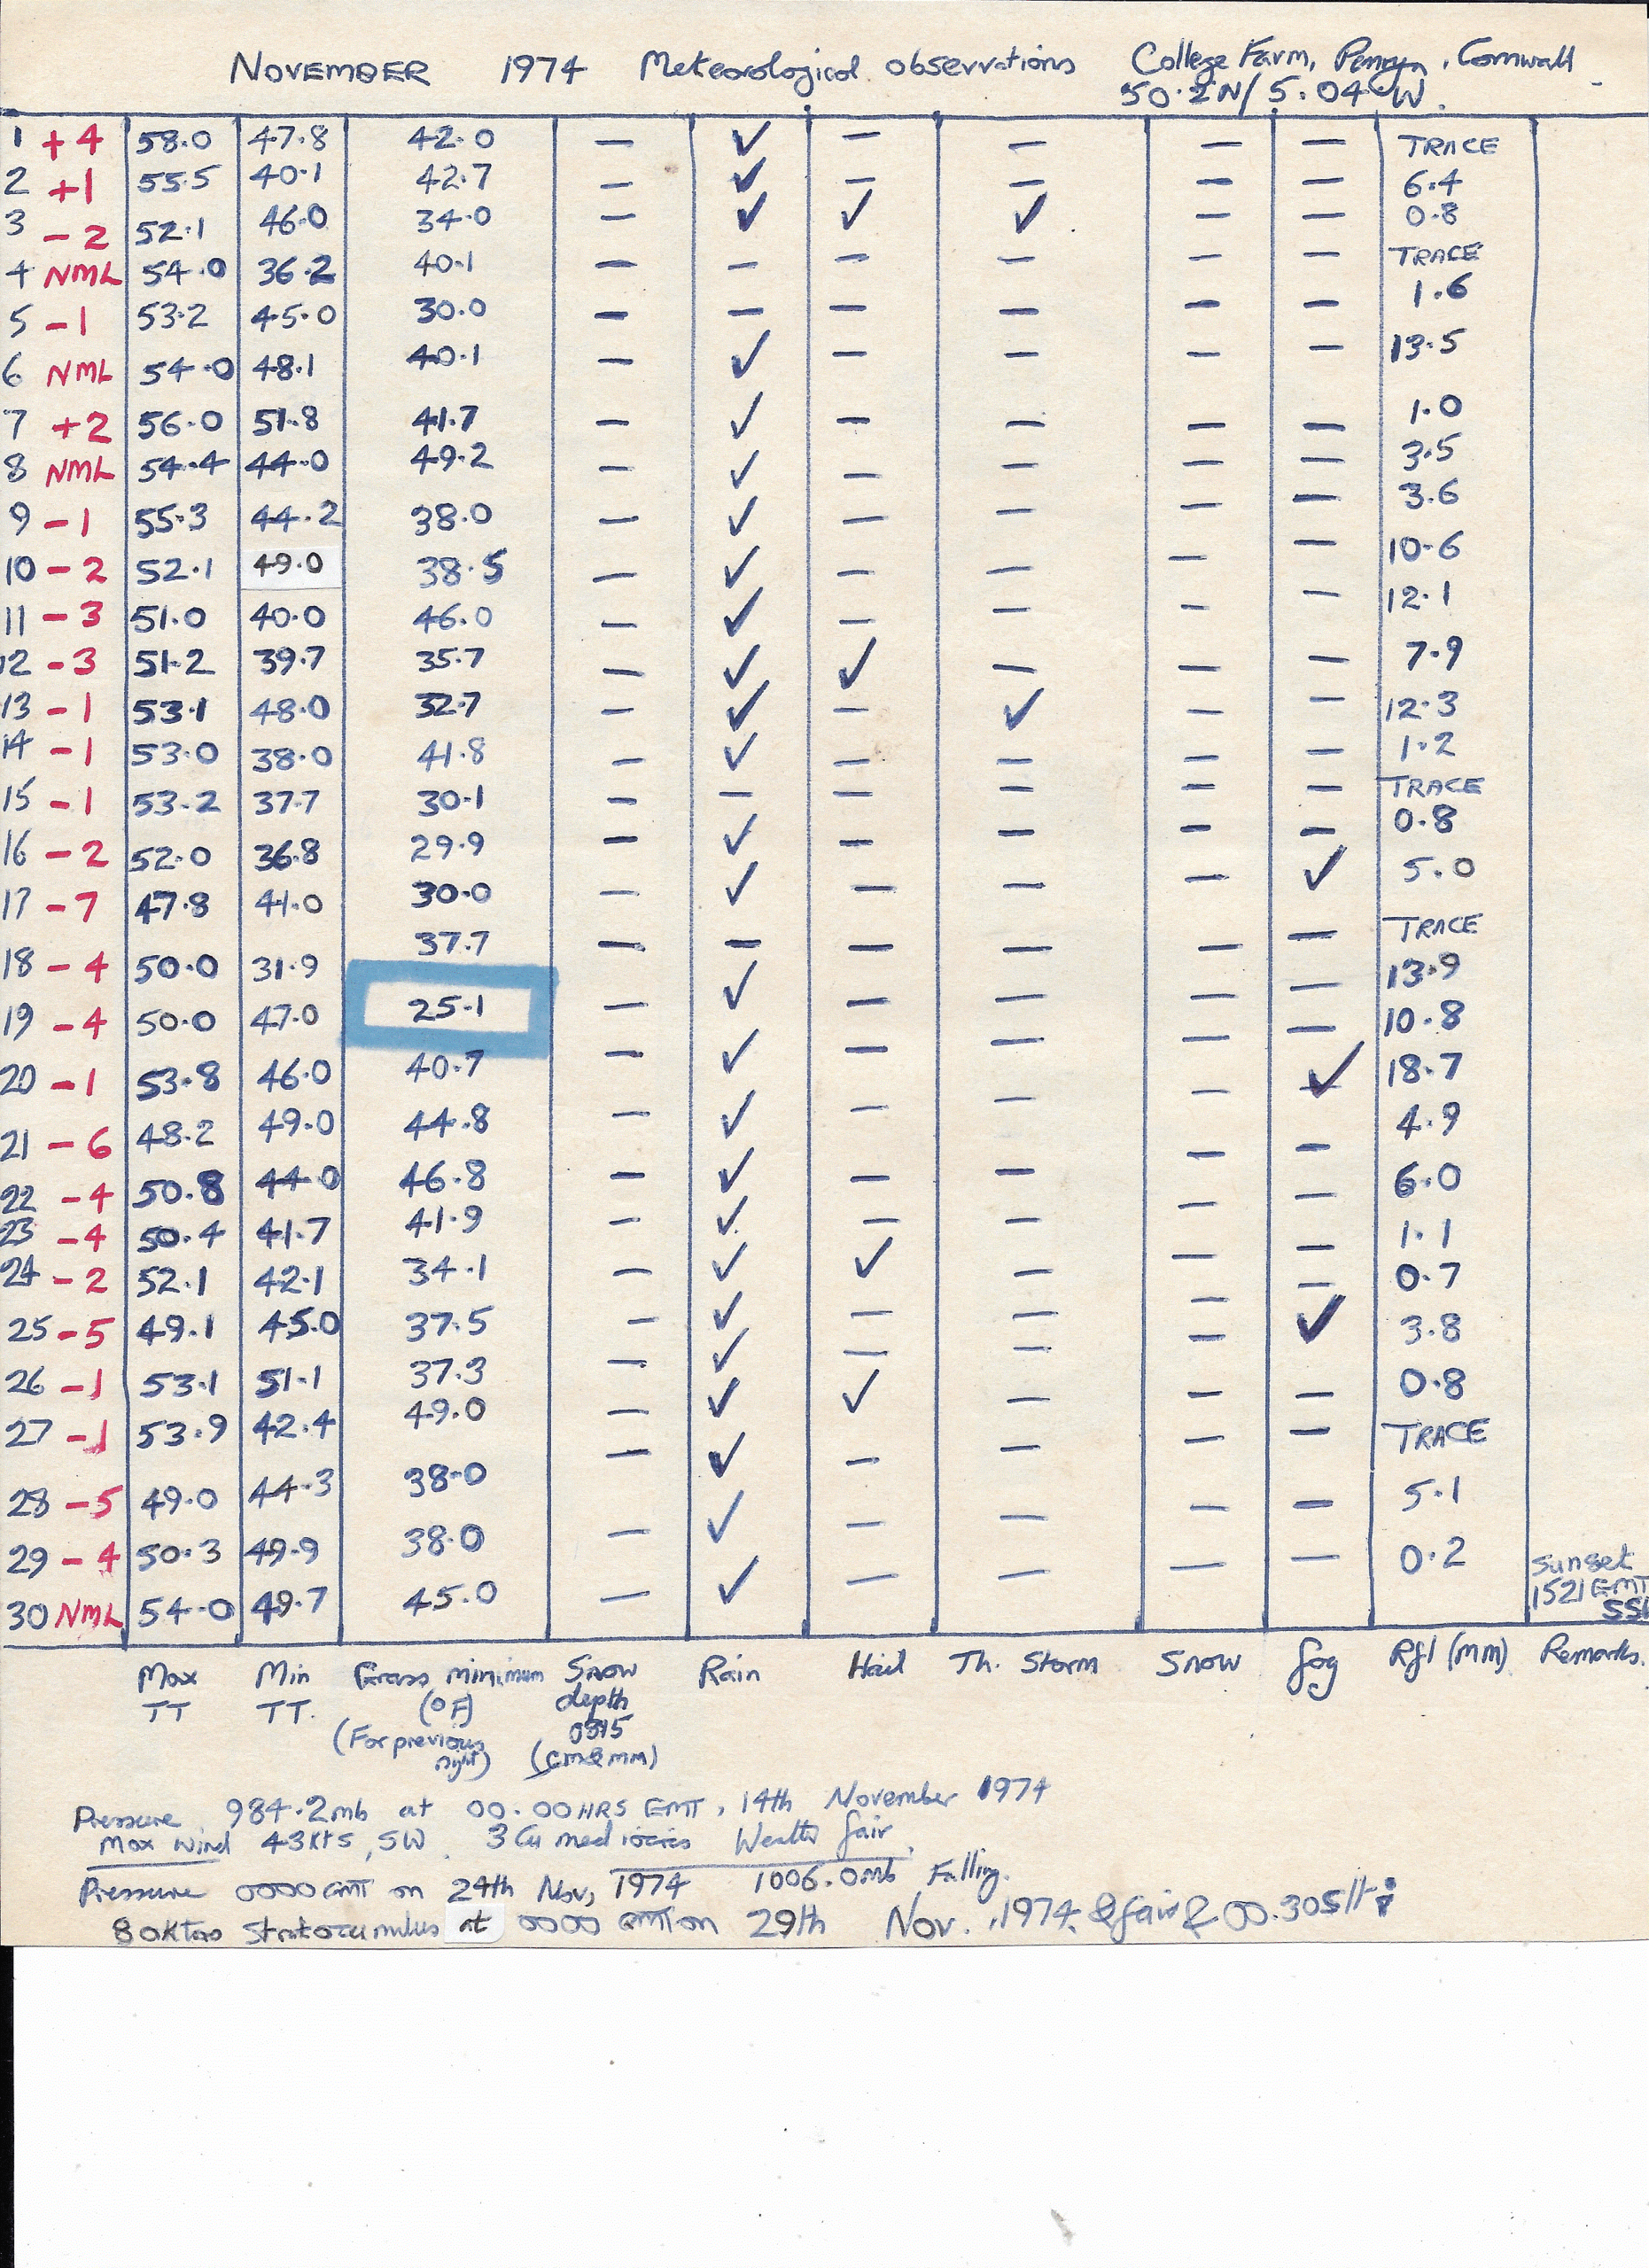 NOVEMBER 1974 Meteorological observations College Farm, Penryn, Cornwall
50.2N/ 5.04 W.
1 +4 58.0 47.8 42.0 — ✓ — — — — TRACE
2 +1 55.5 40.1 42.7 — ✓ — — — — 6.4
3 -2 52.1 46.0 34.0 — ✓ ✓ ✓ — — 0.8
4 NML 54.0 36.2 40.1 — — — — — — TRACE
5 -1 53.2 45.0 30.0 — — — — — — 1.6
6 NML 54.0 48.1 40.1 — ✓ — — — — 13.5
7 +2 56.0 51.8 41.7 — ✓ — — — — 1.0
8 NML 54.4 44.0 49.2 — ✓ — — — — 3.5
9 -1 55.3 44.2 38.0 — ✓ — — — — 3.6
10 -2 52.1 49.0 38.5 — ✓ — — — — 10.6
11 -3 51.0 40.0 46.0 — ✓ — — — — 12.1
12 -3 51.2 39.7 35.7 — ✓ ✓ — — — 7.9
13 -1 53.1 48.0 32.7 — ✓ — ✓ — — 12.3
14 -1 53.0 38.0 41.8 — ✓ — — — — 1.2
15 -1 53.2 37.7 30.1 — — — — — — TRACE
16 -2 52.0 36.8 29.9 — ✓ — — — — 0.8
17 -7 47.8 41.0 30.0 — ✓ — — — ✓ 5.0
18 -4 50.0 31.9 37.7 — — — — — — TRACE
19 -4 50.0 47.0 25.1 — ✓ — — — — 13.9
20 -1 53.8 46.0 40.7 — ✓ — — — — 10.8
21 -6 48.2 49.0 44.8 — ✓ — — — ✓ 18.7
22 -4 50.8 44.0 46.8 — ✓ — — — — 4.9
23 -4 50.4 41.7 41.9 — ✓ — — — — 6.0
24 -2 52.1 42.1 34.1 — ✓ ✓ — — — 1.1
25 -5 49.1 45.0 37.5 — ✓ — — — — 0.7
26 -1 53.1 51.1 37.3 — ✓ — — — ✓ 3.8
27 -1 53.9 42.4 49.0 — ✓ ✓ — — — 0.8
28 -5 49.0 44.3 38.0 — ✓ — — — — TRACE
29 -4 50.3 49.9 38.0 — ✓ — — — — 5.1
30 NML 54.0 49.7 45.0 — ✓ — — — — 0.2 Sunset 1521 GMT
Max TT Min TT. Grass minimum (°F) (For previous night) Snow depth (cm & mm) Rain Hail Th. Storm Snow fog Rfl (MM) Remarks.
Pressure 984.2mb at 00.00 HRS GMT, 14th November 1974
Max Wind 43Kts, SW. 3 Cu mediocris fair
Pressure 0000 GMT on 24th Nov, 1974 1006.0mb Falling.
8 oktas Stratocumulus at 0000 GMT on 29th Nov. 1974